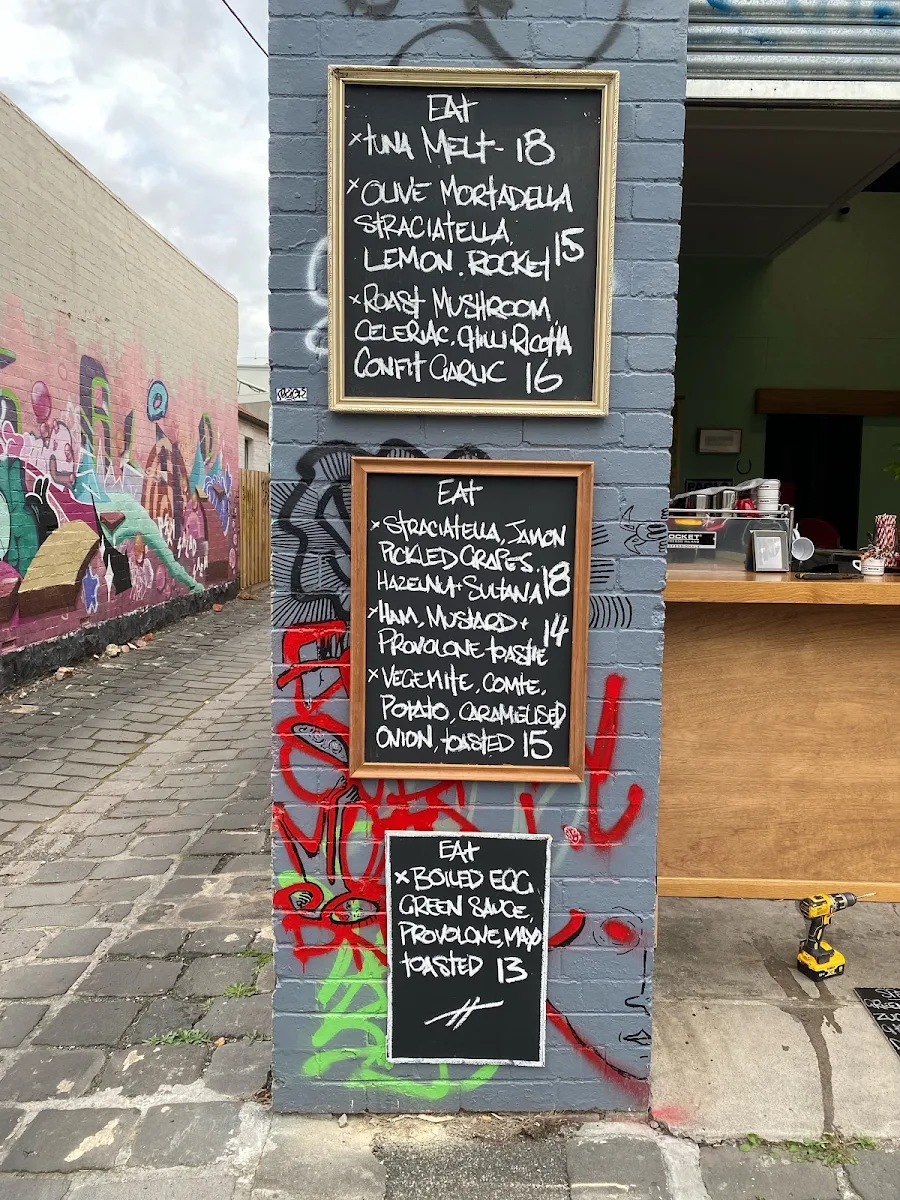 EAT
×TUNA MELT - 18
×OLIVE MORTADELLA
STRACIATELLA,
LEMON. ROCKET 15
×ROAST MUSHROOM
CELERIAC. CHILLI RICOTTA
CONFIT GARLIC 16
EAT
×STRACIATELLA, JAMON
PICKLED GRAPES.
HAZELNUT SULTANA 18
×HAM, MUSTARD +
PROVOLONE TOASTIE 14
×VEGEMITE, COMTE,
POTATO, CARAMELISED
ONION, TOASTED 15
EAT
×BOILED EGG
GREEN SAUCE,
PROVOLONE, MAYO
TOASTED 13